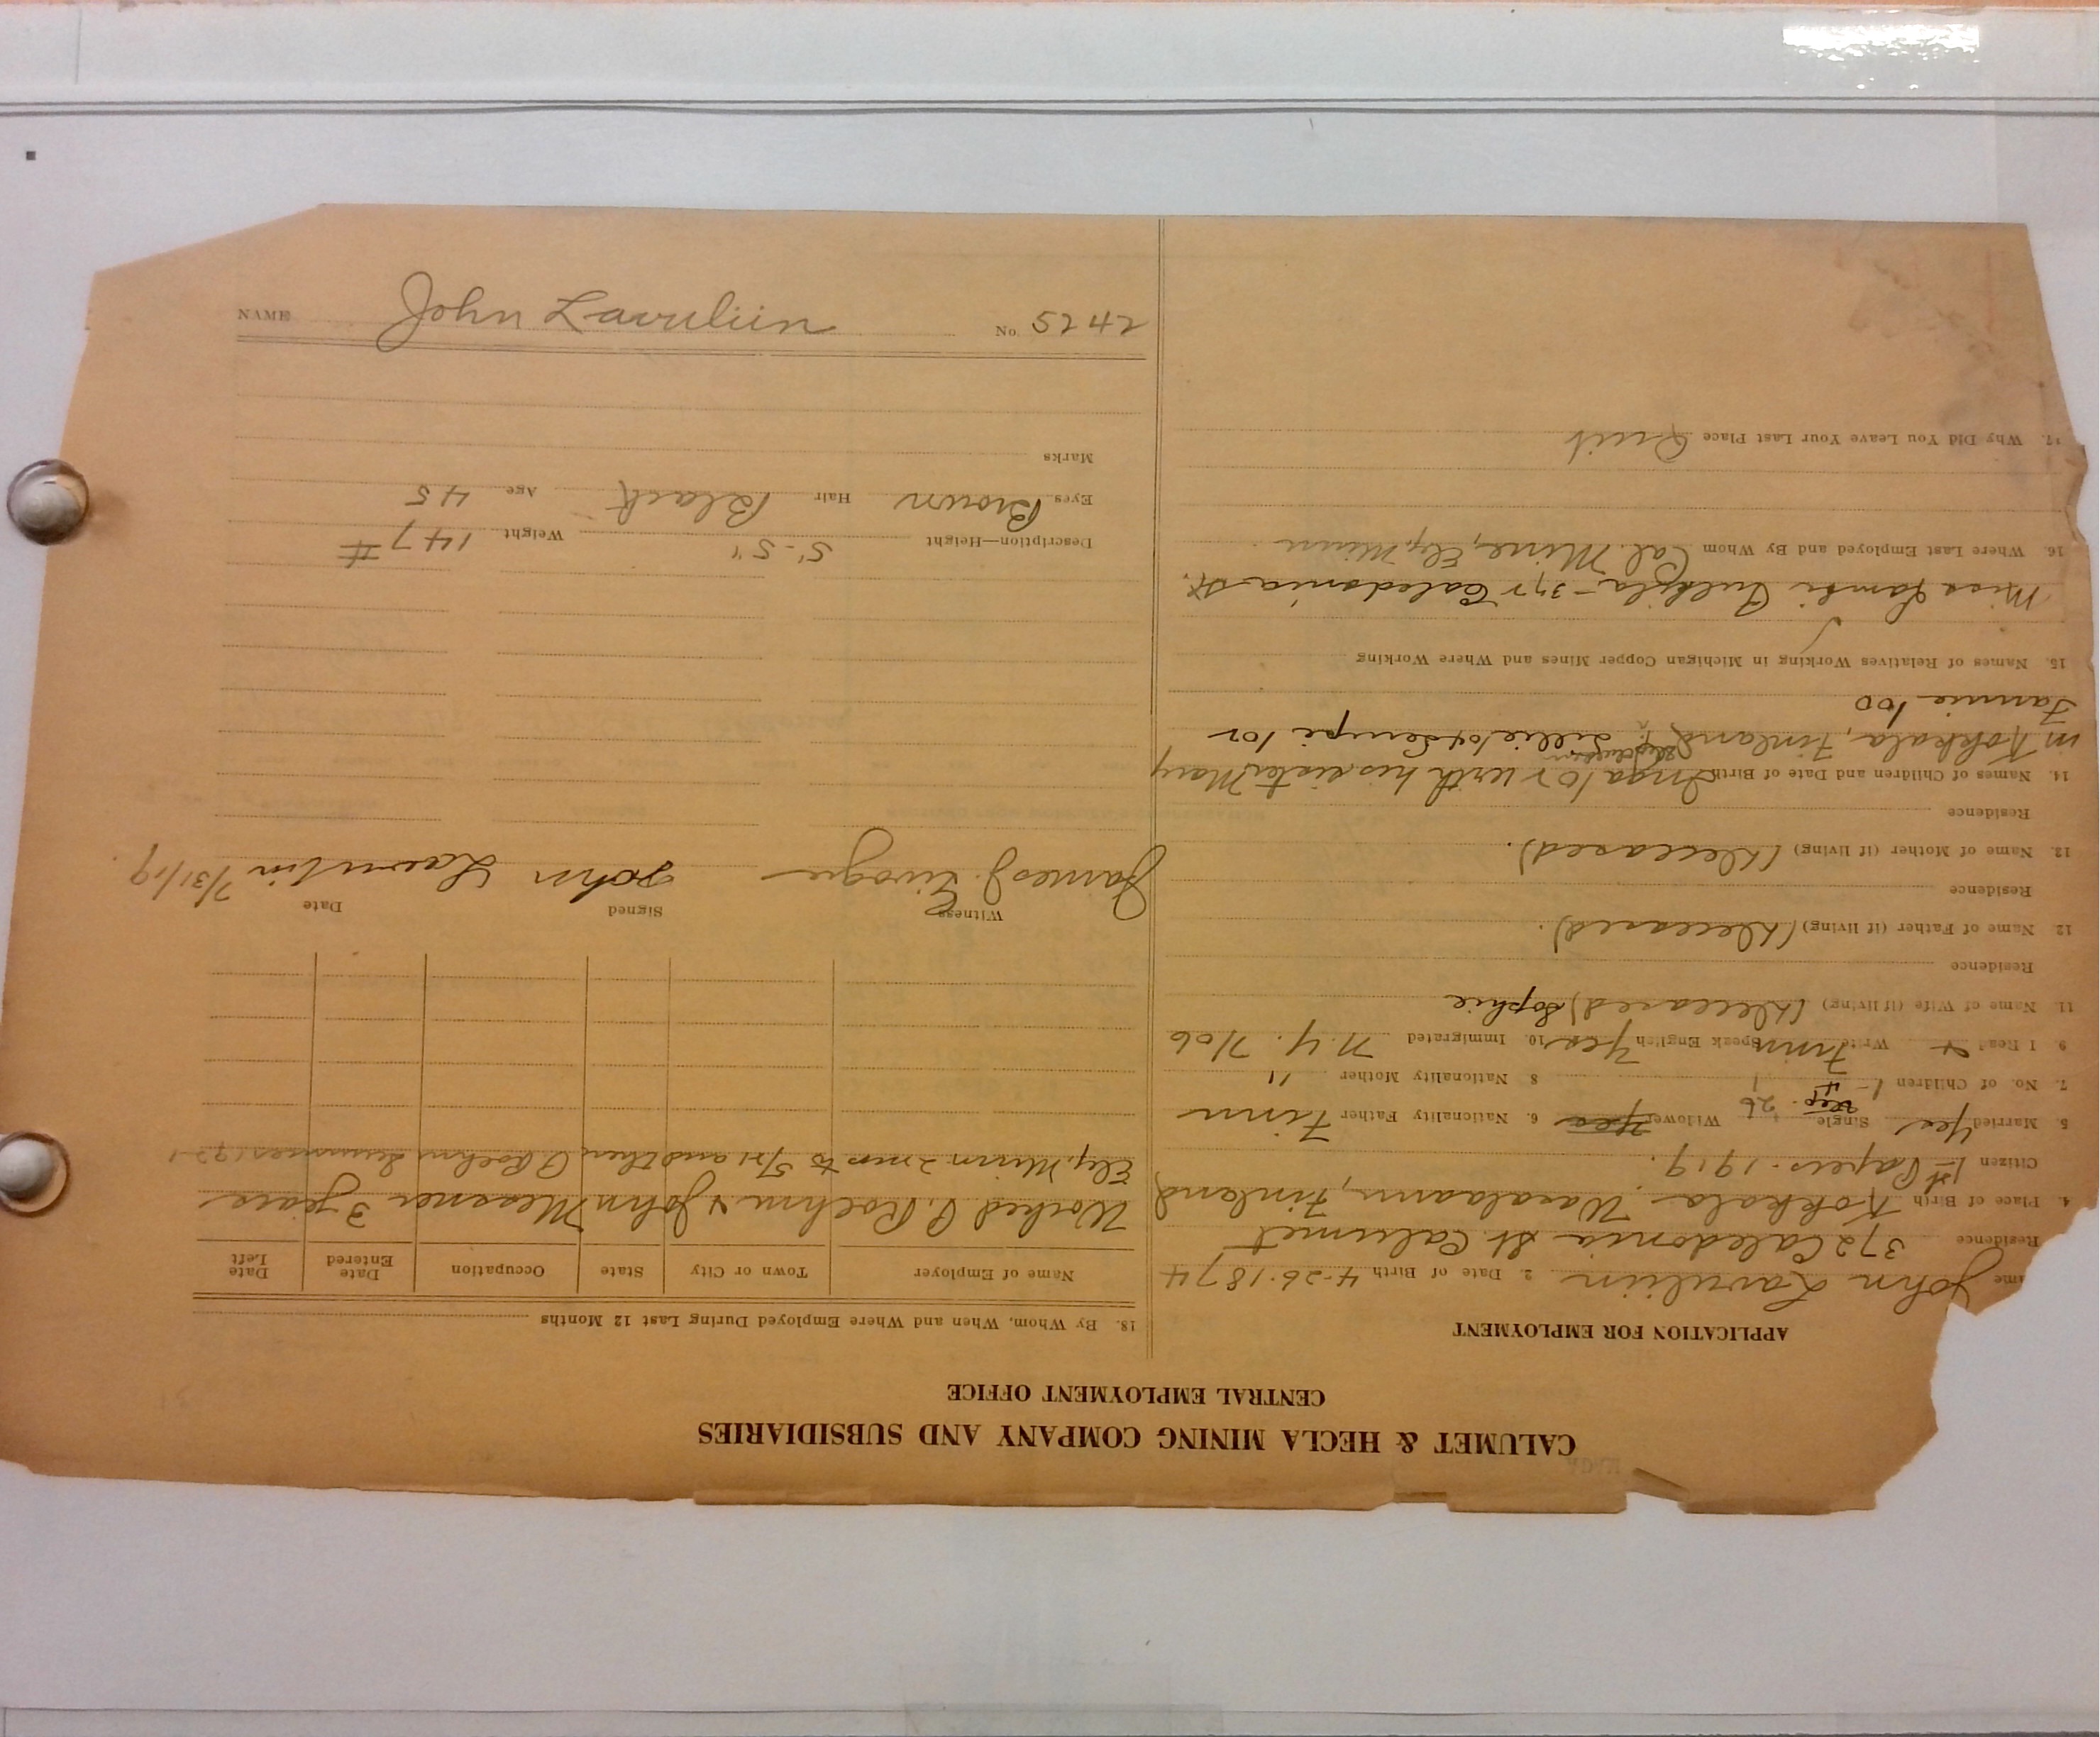 CALUMET & HECLA MINING COMPANY AND SUBSIDIARIES
CENTRAL EMPLOYMENT OFFICE
APPLICATION FOR EMPLOYMENT
ame John Lavuliin 2. Date of Birth 4-26-1874
Residence 372 Caledonia St. Calumet
4. Place of Birth Kokkala - Waalaann, Finland
Citizen 1st Papers - 1919.
5. Married Yes Single 26 Widower Yes 6. Nationality Father Finn
7. No. of Children 1 - 8 Nationality Mother "
9. I Read Write Finn Speak English Yes 10. Immigrated N.Y. 7/06
11. Name of Wife (if living) (Deceased) Sophie
Residence
12. Name of Father (if living) (Deceased).
Residence
13. Name of Mother (if living) (Deceased).
Residence
14. Names of Children and Date of Birth Inga/02 with his sister Mary
in Kokkala, Finland, Lillie/04 Lempi/02
Fannie/00
15. Names of Relatives Working in Michigan Copper Mines and Where Working
Miss Lambi - 372 Caledonia St.
16. Where Last Employed and By Whom Cal. Mine, Ely, Minn
17. Why Did You Leave Your Last Place Quit
18. By Whom, When and Where Employed During Last 12 Months
Name of Employer Town or City State Occupation Date Entered Date Left
Worked P. Roehm & John Messner 3 years
Ely, Minn 2 mos to 5/21 and then P. Roehm Summer 1921
Witness Signed Date
James J. John Lavuliin 7/31/19
Description—Height 5'-5" Weight 147 #
Eyes Brown Hair Black Age 45
Marks
NAME John Lavuliin No. 5242